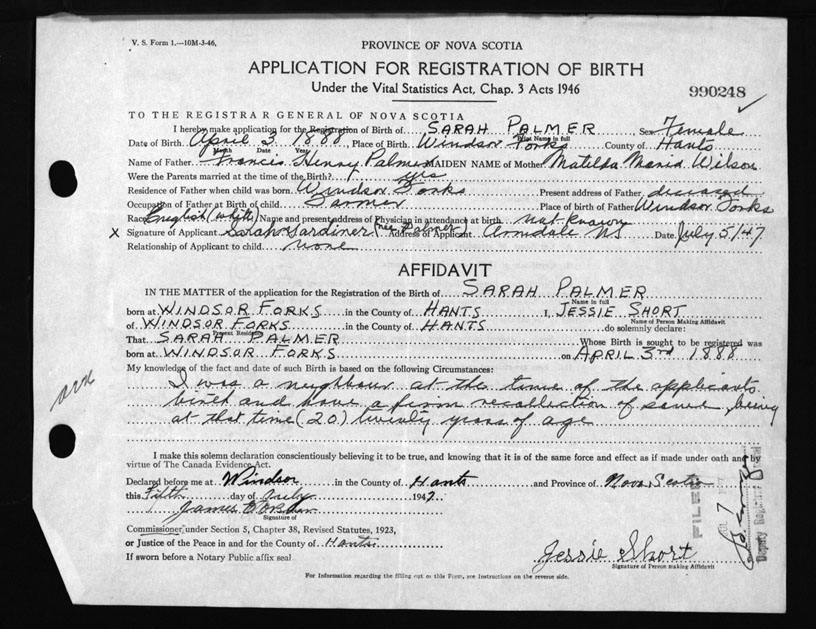 V. S. Form 1.—10M-3-46.
PROVINCE OF NOVA SCOTIA
APPLICATION FOR REGISTRATION OF BIRTH
Under the Vital Statistics Act, Chap. 3 Acts 1946
990248
TO THE REGISTRAR GENERAL OF NOVA SCOTIA
I hereby make application for the Registration of Birth of SARAH PALMER, Sex Female
Print Name in full
Date of Birth April 3 1888, Place of Birth Windsor Forks County of Hants
Month Date Year
Name of Father Francis Henry Palmer MAIDEN NAME of Mother Matilda Maria Wilson
Were the Parents married at the time of the Birth? yes
Residence of Father when child was born Windsor Forks Present address of Father deceased
Occupation of Father at Birth of child Farmer Place of birth of Father Windsor Forks
Race English (white) Name and present address of Physician in attendance at birth not known
X Signature of Applicant Sarah Gardiner (nee Palmer) Address of Applicant Armdale NS Date July 5/47
Relationship of Applicant to child none
AFFIDAVIT
IN THE MATTER of the application for the Registration of the Birth of SARAH PALMER
Name in full
born at WINDSOR FORKS in the County of HANTS I, JESSIE SHORT
Name of Person Making Affidavit
of WINDSOR FORKS in the County of HANTS do solemnly declare:
Present Residence
That SARAH PALMER Whose Birth is sought to be registered was
born at WINDSOR FORKS on APRIL 3RD 1888
My knowledge of the fact and date of such Birth is based on the following Circumstances:
I was a neighbour at the time of the applicants
birth and have a firm recollection of same, being
at that time (20) twenty years of age
I make this solemn declaration conscientiously believing it to be true, and knowing that it is of the same force and effect as if made under oath and by
virtue of The Canada Evidence Act.
Declared before me at Windsor in the County of Hants and Province of Nova Scotia
this Fifth day of July 1947.
James
Signature of
Commissioner, under Section 5, Chapter 38, Revised Statutes, 1923,
or Justice of the Peace in and for the County of Hants
If sworn before a Notary Public affix seal
Jessie Short
Signature of Person making Affidavit
For Information regarding the filling out of this Form, see Instructions on the reverse side.
FILED
Deputy Registrar